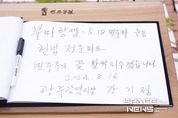 부마항쟁 - 5.18 민주화 운동
헌법 전문으로
민주주의 꽃 활짝 피우겠습니다
2024. 8. 16
광주광역시장 강기정